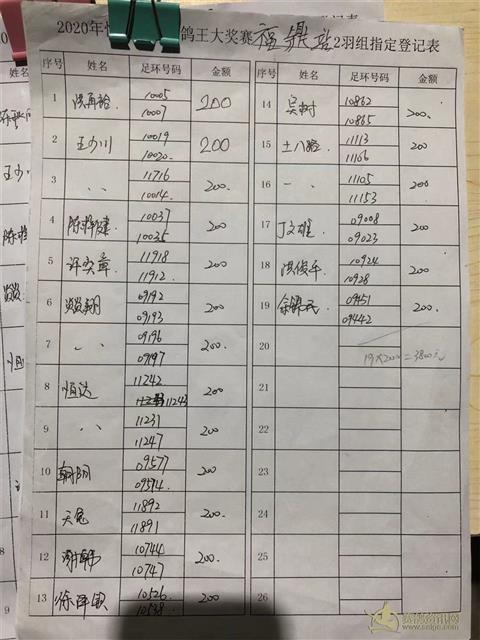 2020年
鸽王大奖赛 福鼎站 2羽组指定登记表
序号 姓名 足环号码 金额 序号 姓名 足环号码 金额
1 10005 200
10007
2 王少川 10019 200
10020
3 、、 11716 200
10014
4 10037 200
10035
5 许奕章 11918 200
11912
6 09192 200
09193
7 、、 09196 200
09197
8 恒达 11242 200
11243
9 、、 11231 200
11247
10 朝阳 09577 200
09574
11 11892 200
11891
12 谢韩 10744 200
10747
13 10526 200
10538
14 吴树 10862 200
10865
15 11113 200
11166
16 11105 200
11153
17 丁文雄 09008 200
09023
18 洪俊平 10924 200
10928
19 余锦民 09451 200
09442
20
19×200=3800元
21
22
23
24
25
26
姓名
www.saige.com